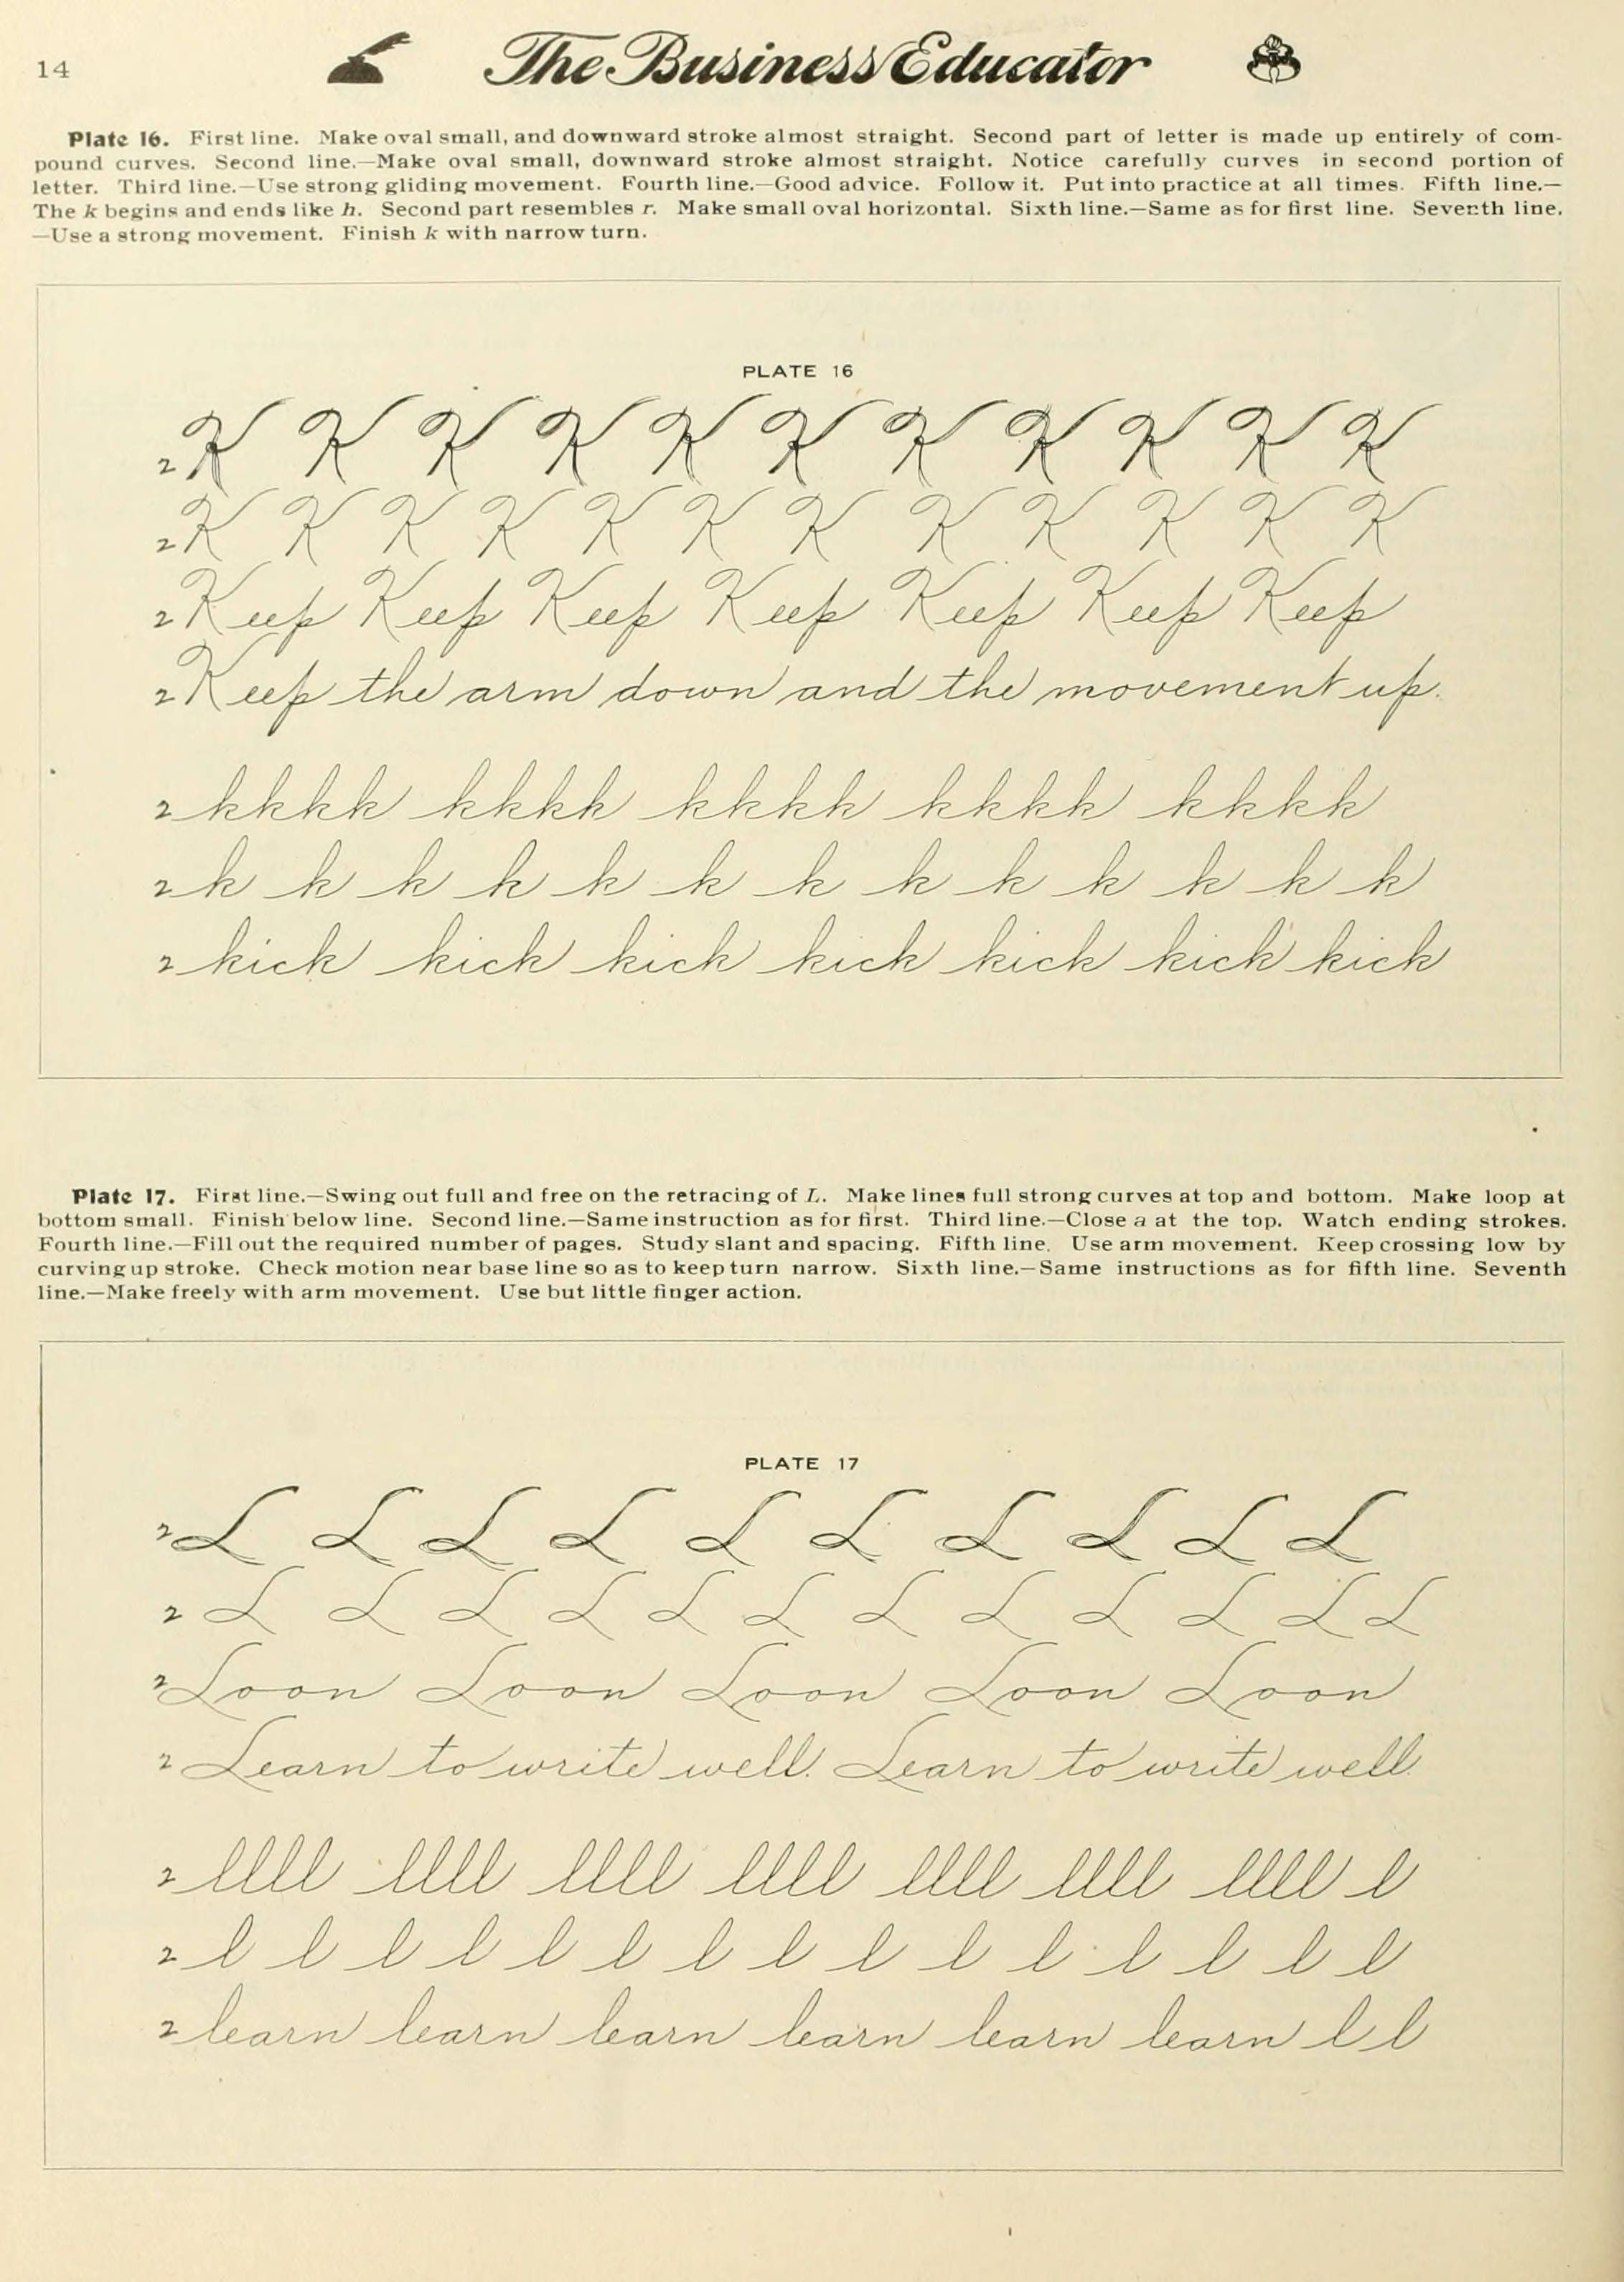 14
The Business Educator
Plate 16. First line. Make oval small, and downward stroke almost straight. Second part of letter is made up entirely of com-
pound curves. Second line.—Make oval small, downward stroke almost straight. Notice carefully curves in second portion of
letter. Third line.—Use strong gliding movement. Fourth line.—Good advice. Follow it. Put into practice at all times. Fifth line.—
The k begins and ends like h. Second part resembles r. Make small oval horizontal. Sixth line.—Same as for first line. Seventh line.
—Use a strong movement. Finish k with narrow turn.
PLATE 16
2 K K K K K K K K K K K
2 K K K K K K K K K K K K
2 Keep Keep Keep Keep Keep Keep Keep
2 Keep the arm down and the movement up.
2 kkkk kkkk kkkk kkkk kkkk
2 k k k k k k k k k k k k k
2 kick kick kick kick kick kick kick
Plate 17. First line.—Swing out full and free on the retracing of L. Make lines full strong curves at top and bottom. Make loop at
bottom small. Finish below line. Second line.—Same instruction as for first. Third line.—Close a at the top. Watch ending strokes.
Fourth line.—Fill out the required number of pages. Study slant and spacing. Fifth line. Use arm movement. Keep crossing low by
curving up stroke. Check motion near base line so as to keep turn narrow. Sixth line.—Same instructions as for fifth line. Seventh
line.—Make freely with arm movement. Use but little finger action.
PLATE 17
2 L L L L L L L L L L
2 L L L L L L L L L L L L
2 Loon Loon Loon Loon Loon
2 Learn to write well. Learn to write well.
2 llll llll llll llll llll llll llll l
2 l l l l l l l l l l l l l l l
2 learn learn learn learn learn learn l l